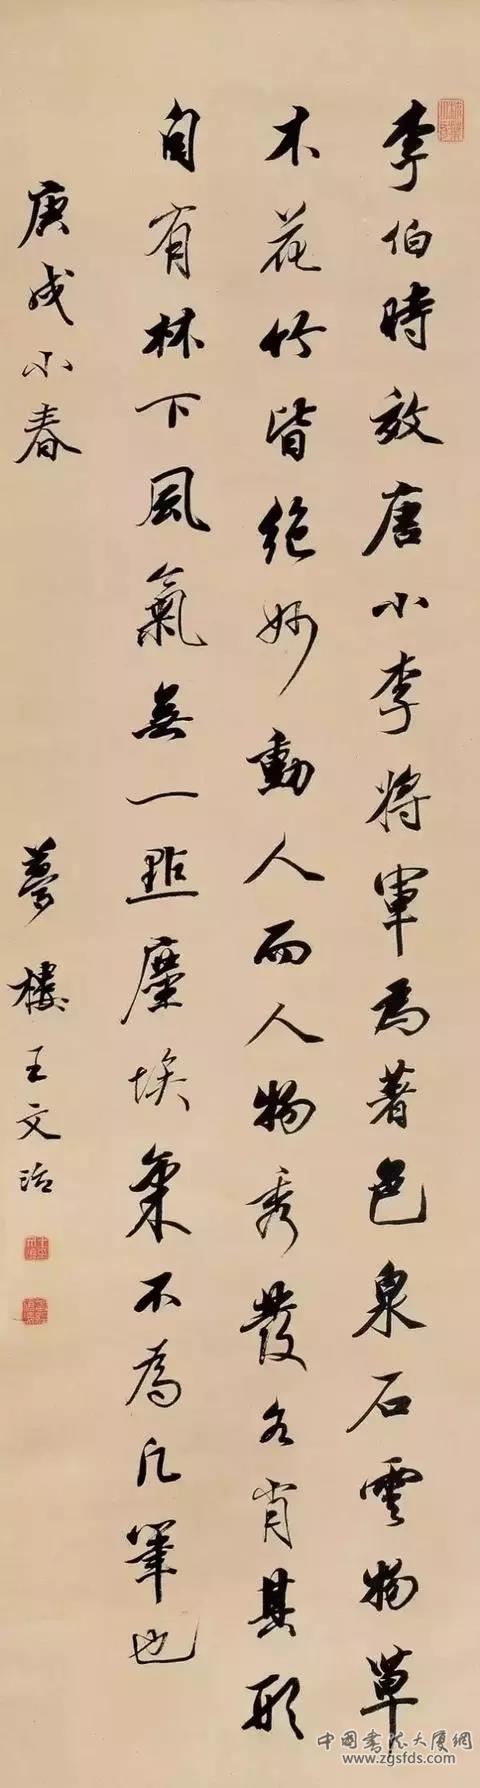 李伯時效唐小李將軍為著色泉石雲物草
木花竹皆絶妙動人而人物秀發各肖其形
自有林下風氣無一點塵埃氣不為凡筆也
庚戌小春
夢樓王文治
中國書法大廈網
www.zgsfds.com